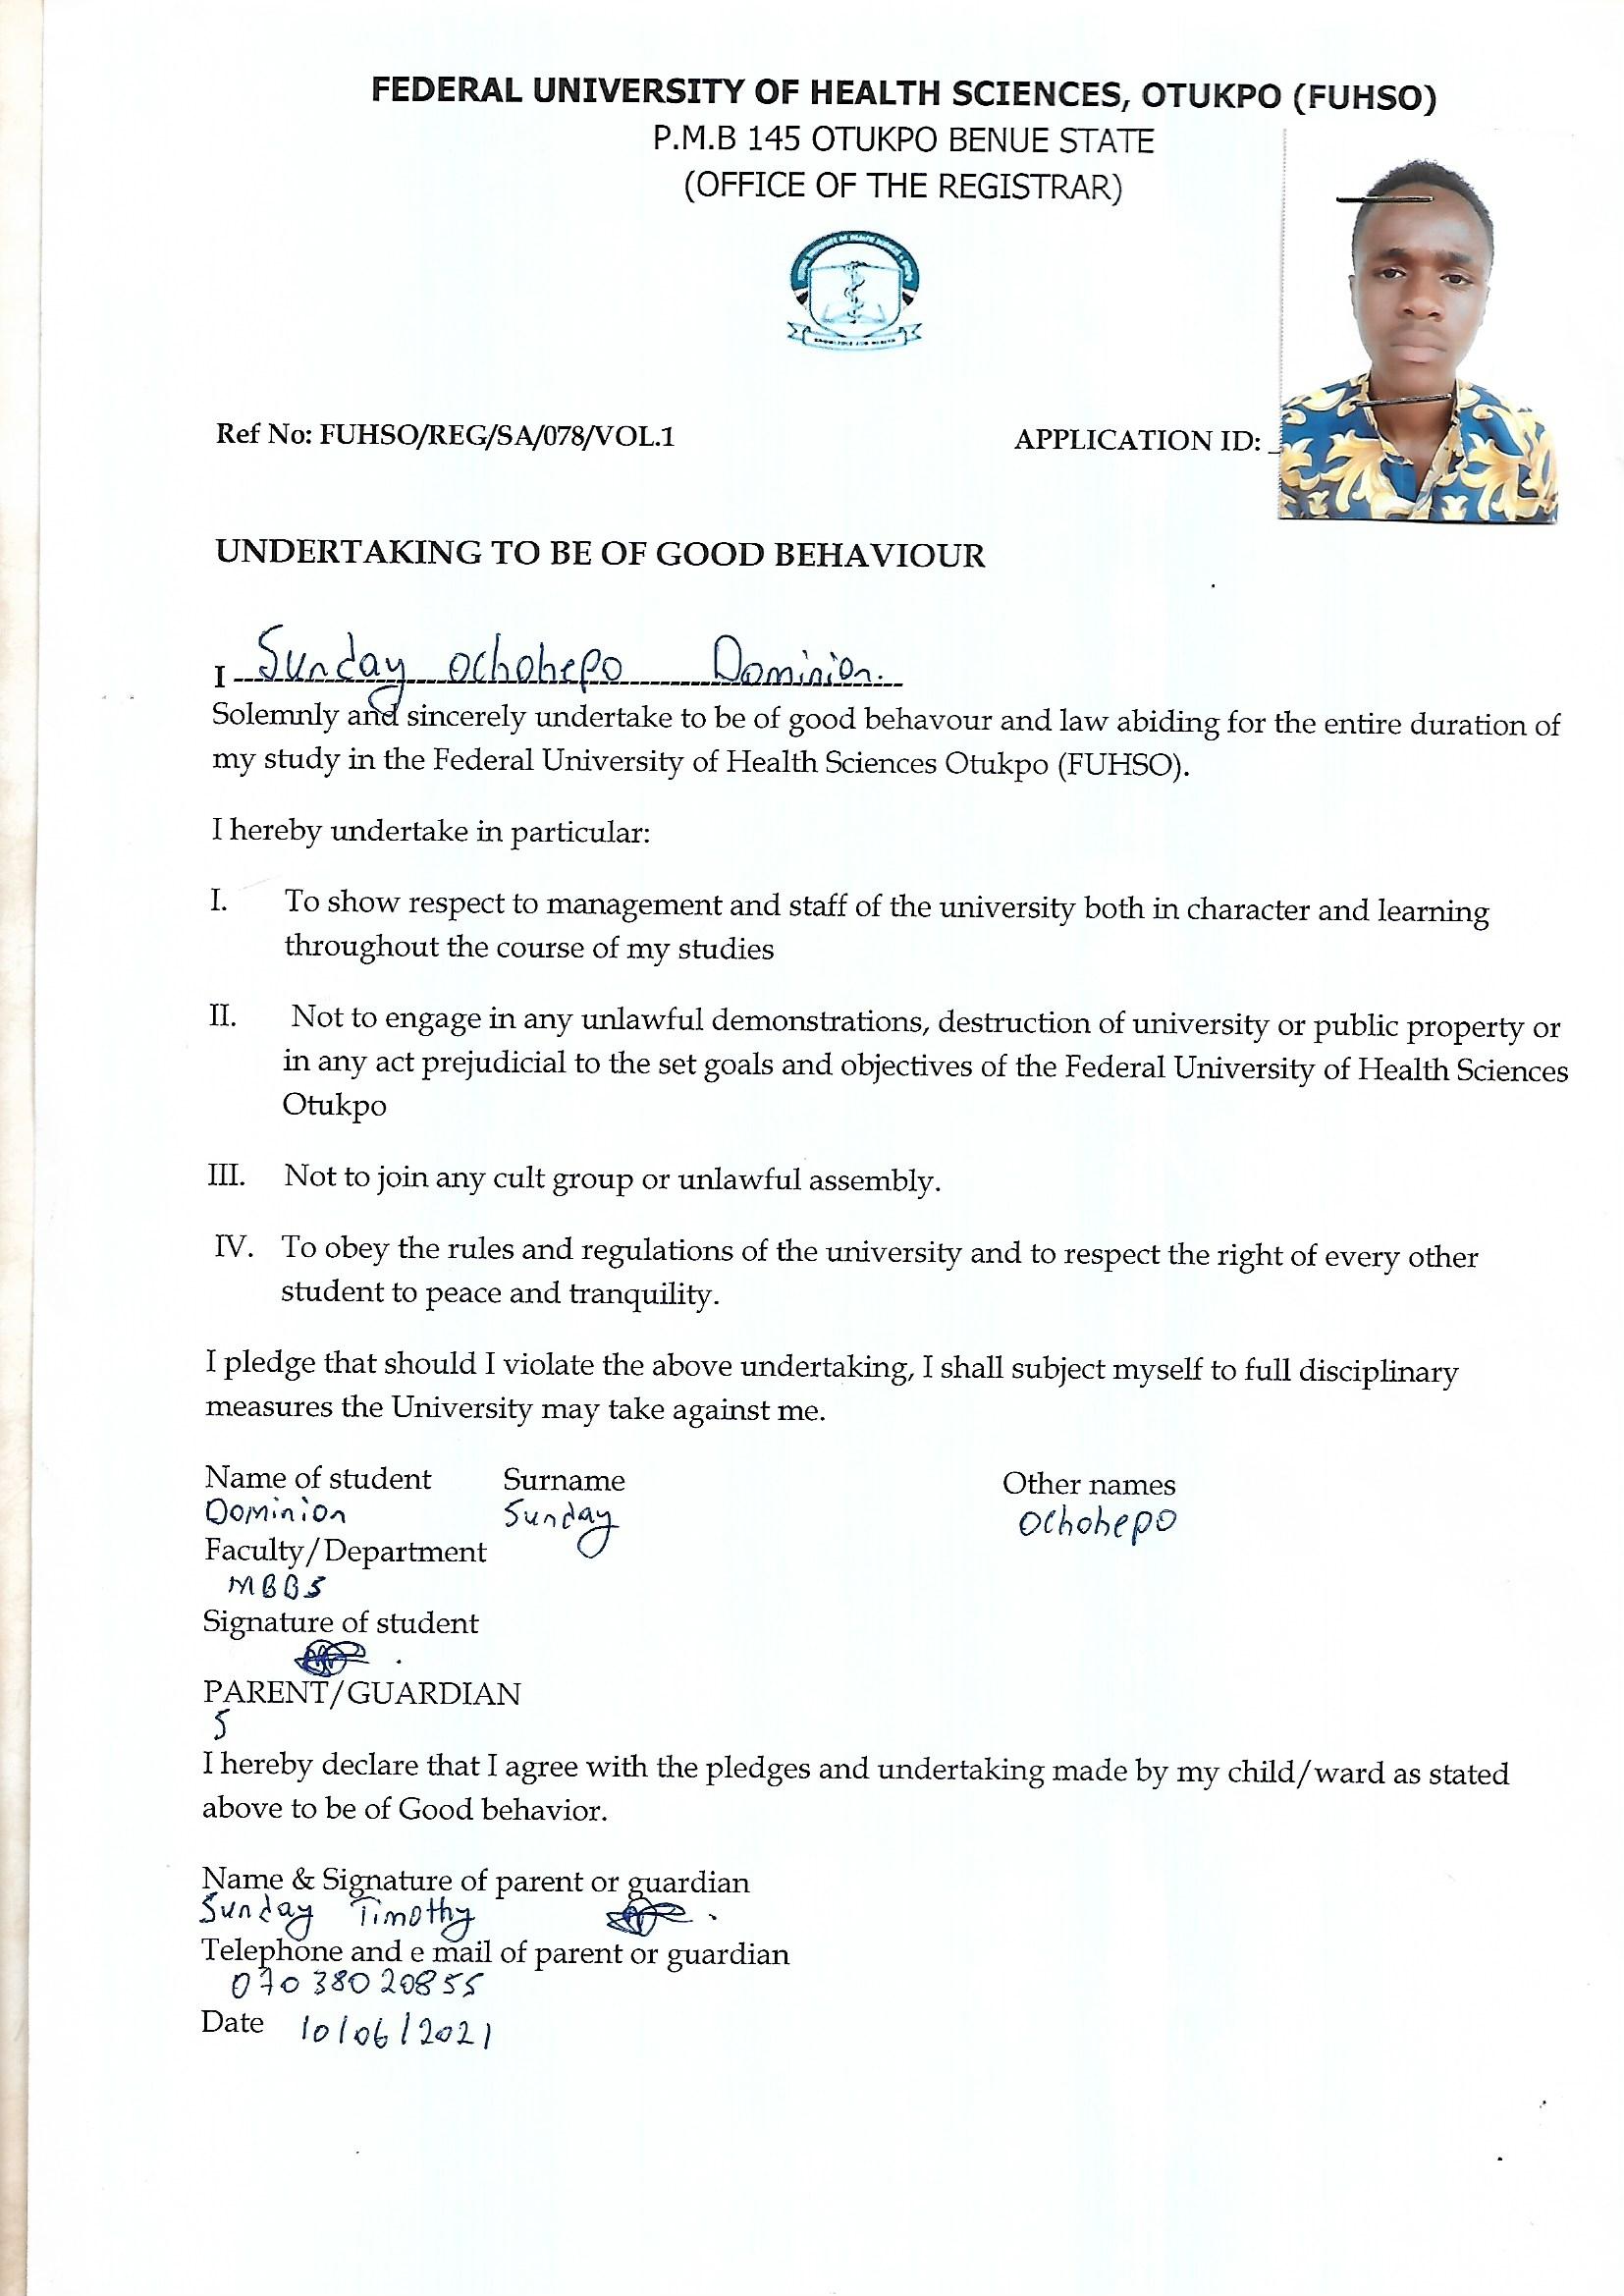 FEDERAL UNIVERSITY OF HEALTH SCIENCES, OTUKPO (FUHSO)
P.M.B 145 OTUKPO BENUE STATE
(OFFICE OF THE REGISTRAR)
KNOWLEDGE FOR HEALTH
Ref No: FUHSO/REG/SA/078/VOL.1 APPLICATION ID: _
UNDERTAKING TO BE OF GOOD BEHAVIOUR
I Sunday Ochohepo Dominion.
Solemnly and sincerely undertake to be of good behavour and law abiding for the entire duration of
my study in the Federal University of Health Sciences Otukpo (FUHSO).
I hereby undertake in particular:
I. To show respect to management and staff of the university both in character and learning
throughout the course of my studies
II. Not to engage in any unlawful demonstrations, destruction of university or public property or
in any act prejudicial to the set goals and objectives of the Federal University of Health Sciences
Otukpo
III. Not to join any cult group or unlawful assembly.
IV. To obey the rules and regulations of the university and to respect the right of every other
student to peace and tranquility.
I pledge that should I violate the above undertaking, I shall subject myself to full disciplinary
measures the University may take against me.
Name of student Surname Other names
Dominion Sunday Ochohepo
Faculty/Department
MBBS
Signature of student
PARENT/GUARDIAN
S
I hereby declare that I agree with the pledges and undertaking made by my child/ward as stated
above to be of Good behavior.
Name & Signature of parent or guardian
Sunday Timothy
Telephone and e mail of parent or guardian
07038020855
Date 10/06/2021